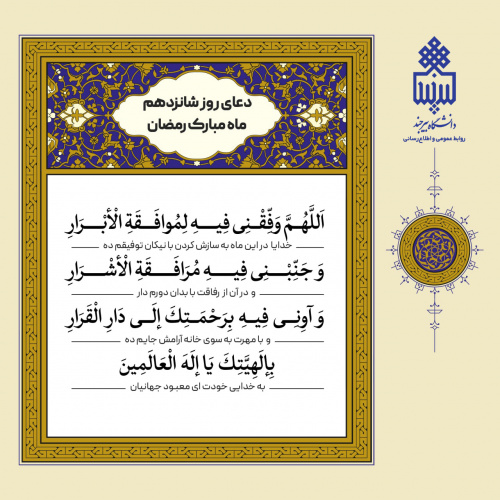 دعای روز شانزدهم
ماه مبارک رمضان
اَللَّهُمَّ وَفِّقْنِی فِیهِ لِمُوافَقَةِ الْأَبْرَارِ
خدایا در این ماه به سازش کردن با نیکان توفیقم ده
وَ جَنِّبْنِی فِیهِ مُرَافَقَةِ الْأَشْرَارِ
و در آن از رفاقت با بدان دورم دار
وَ آوِنِی فِیهِ بِرَحْمَتِكَ إلَی دَارِ الْقَرَارِ
و با مهرت به سوی خانه آرامش جایم ده
بِإلَهِیَّتِكَ یَا إلَهَ الْعَالَمِینَ
به خدایی خودت ای معبود جهانیان
دانشگاه بیرجند
روابط عمومی و اطلاع‌رسانی